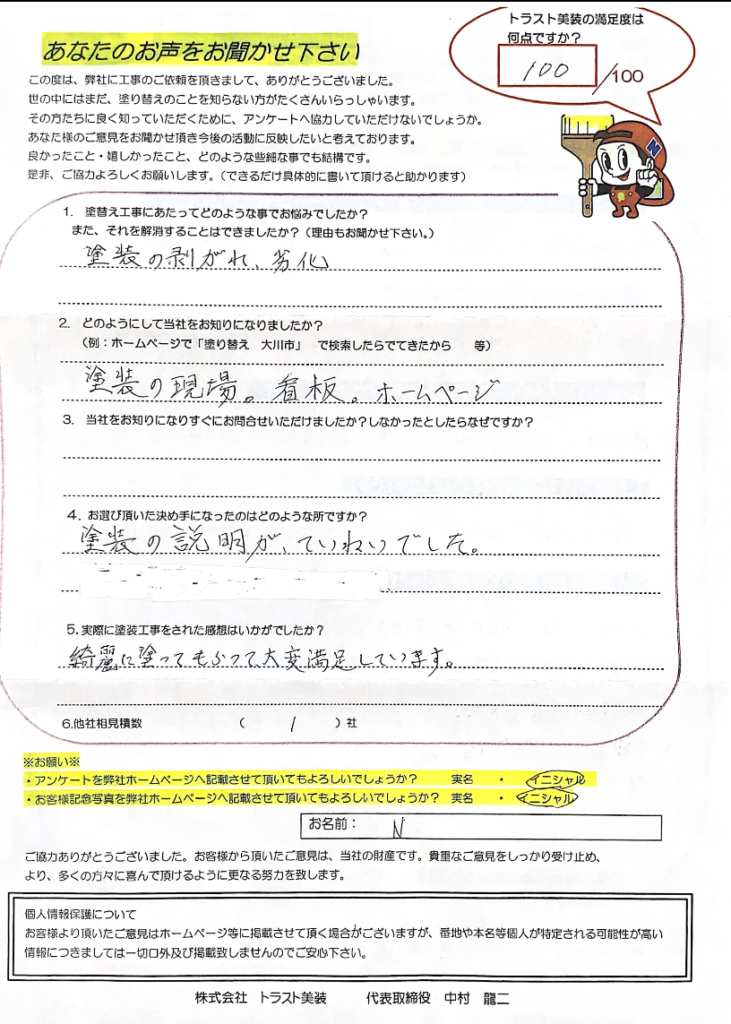 あなたのお声をお聞かせ下さい
トラスト美装の満足度は
何点ですか？
100/100
この度は、弊社に工事のご依頼を頂きまして、ありがとうございました。
世の中にはまだ、塗り替えのことを知らない方がたくさんいらっしゃいます。
その方たちに良く知っていただくために、アンケートへ協力していただけないでしょうか。
あなた様のご意見をお聞かせ頂き今後の活動に反映したいと考えております。
良かったこと・嬉しかったこと、どのような些細な事でも結構です。
是非、ご協力よろしくお願いします。（できるだけ具体的に書いて頂けると助かります）
N
1. 塗替え工事にあたってどのような事でお悩みでしたか？
また、それを解消することはできましたか？（理由もお聞かせ下さい。）
塗装の剥がれ、劣化
2. どのようにして当社をお知りになりましたか？
（例：ホームページで「塗り替え 大川市」で検索したらでてきたから 等）
塗装の現場。看板。ホームページ
3. 当社をお知りになりすぐにお問合せいただけましたか？しなかったとしたらなぜですか？
4. お選び頂いた決め手になったのはどのような所ですか？
塗装の説明が、ていねいでした。
5. 実際に塗装工事をされた感想はいかがでしたか？
綺麗に塗ってもらって大変満足しています。
6.他社相見積数 （ 1 ）社
※お願い※
・アンケートを弊社ホームページへ記載させて頂いてもよろしいでしょうか？ 実名 ・ イニシャル
・お客様記念写真を弊社ホームページへ記載させて頂いてもよろしいでしょうか？ 実名 ・ イニシャル
お名前： N
ご協力ありがとうございました。お客様から頂いたご意見は、当社の財産です。貴重なご意見をしっかり受け止め、
より、多くの方々に喜んで頂けるように更なる努力を致します。
個人情報保護について
お客様より頂いたご意見はホームページ等に掲載させて頂く場合がございますが、番地や本名等個人が特定される可能性が高い
情報につきましては一切口外及び掲載致しませんのでご安心下さい。
株式会社 トラスト美装 代表取締役 中村 龍二